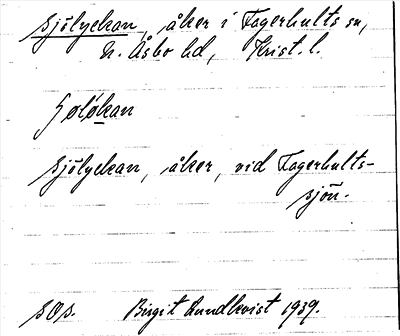 Sjölyckan, åker i Fagerhults sn,
N. Åsbo hd, Krist. l.
sjölyckan, åker, vid Fagerhults-
sjön.
SOs. Birgit Lundkvist 1939.